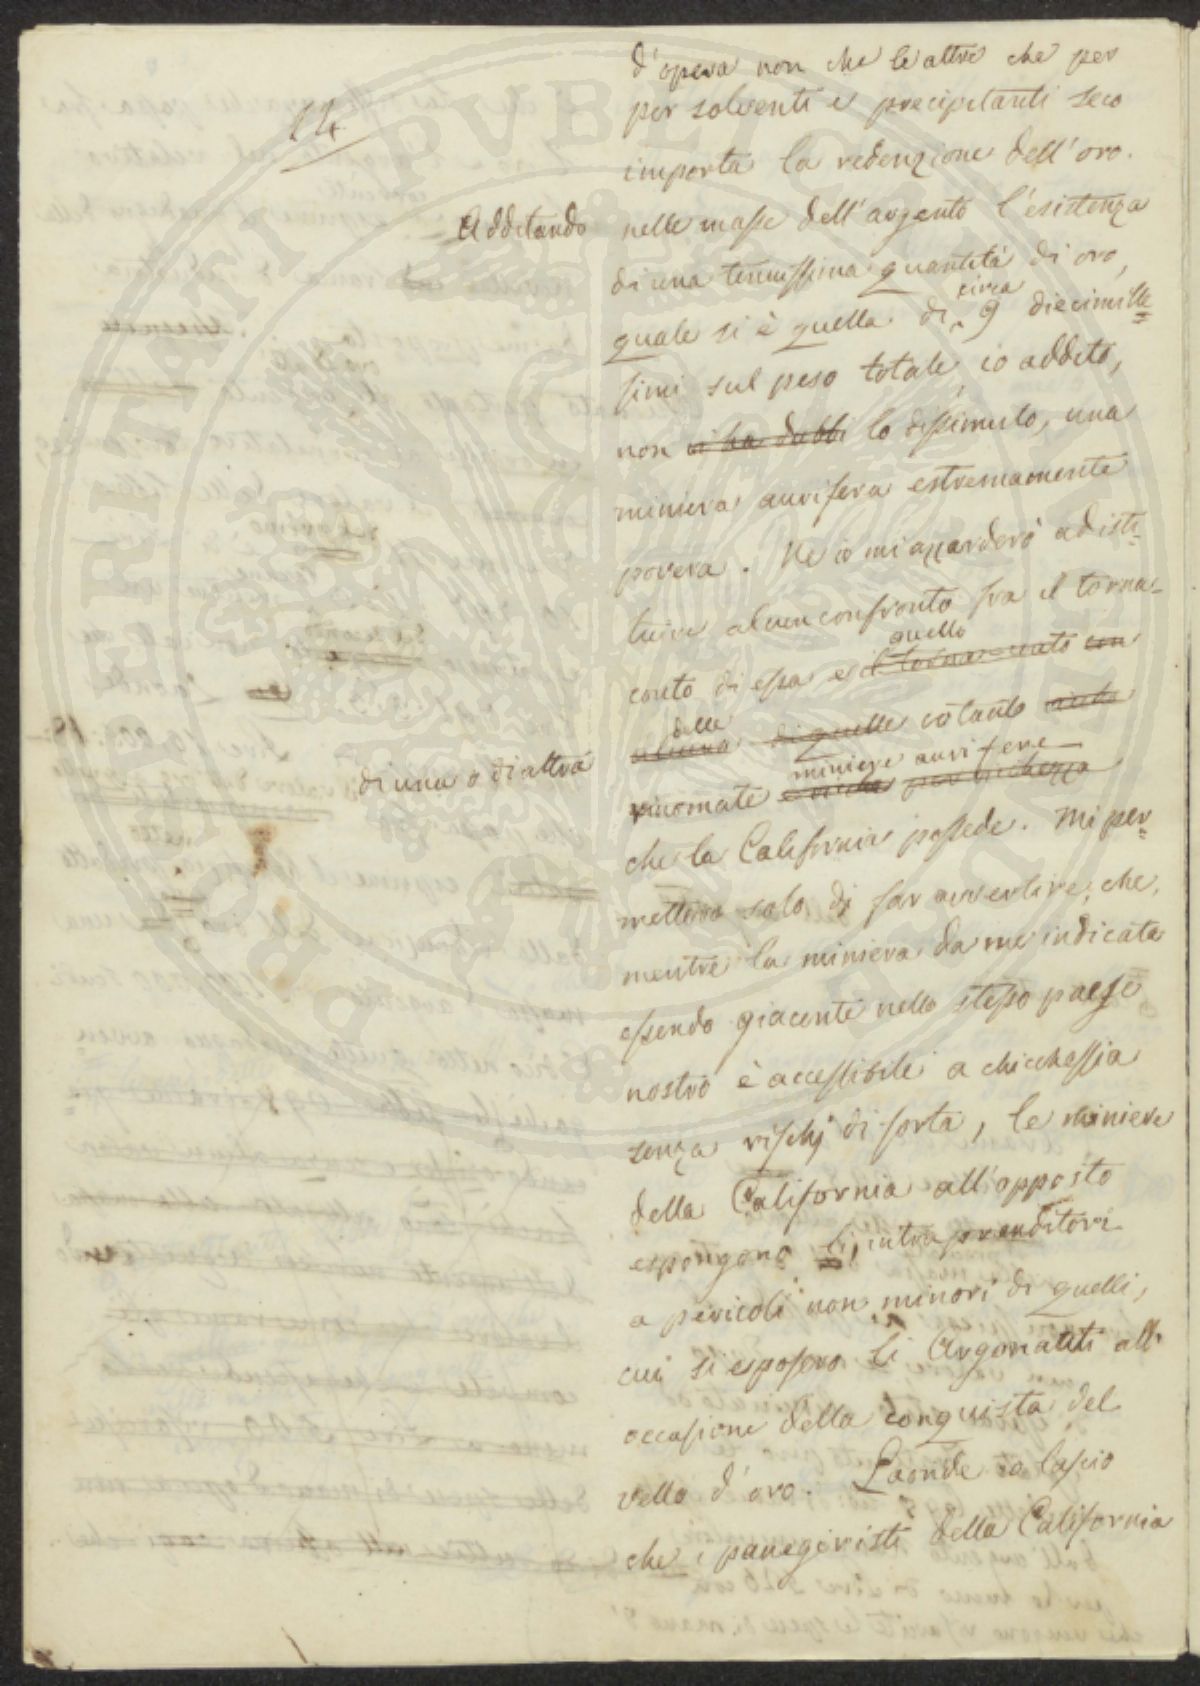 14
d'opera non che le altre che per
per solventi e precipitanti seco
importa la redenzione dell'oro.
Additando nelle masse dell'argento l'esistenza
di una tenuissima quantità di oro,
quale si è quella di circa 9 diecimille=
simi sul peso totale, io addito,
non vi ha dubbi lo dissimulo, una
miniera aurifera estremamente
povera. Ne io mi azzarderò ad isti=
tuire alcun confronto fra il torna=
conto di essa e il torna-conto con
quello
alcuna di quelle cotanto
delle
rinomate e ricche per ricchezza
miniere aurifere
di una o di altra
che la California possede. Mi per=
metterò solo di far avvertire, che,
mentre la miniera da me indicata
essendo giacente nello stesso paese
nostro è accessibile a chicchessia
senza rischj di sorta, le miniere
della California all'opposto
espongono li intraprenditori
a pericoli non minori di quelli,
cui si esposero li Argonauti all'
occasione della conquista del
vello d'oro. Laonde io lascio
che i panegiristi della California